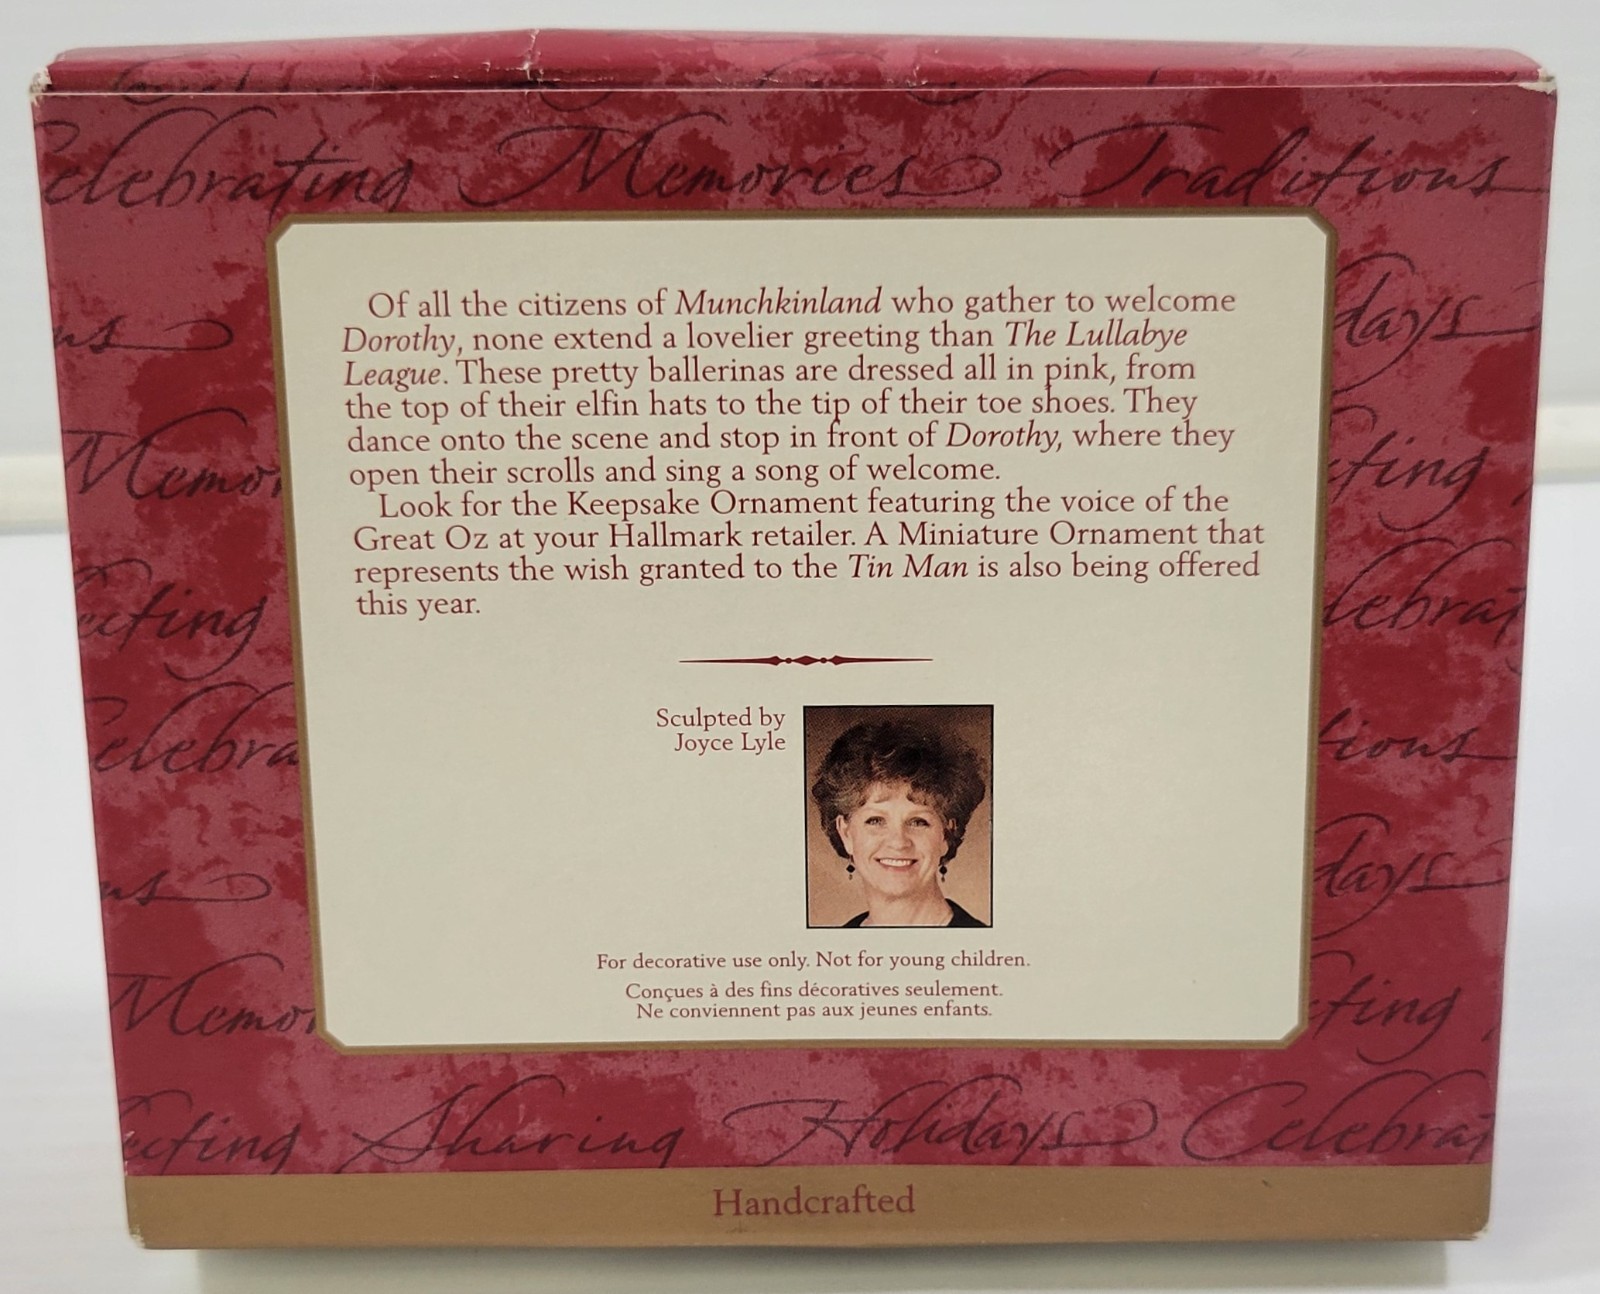 Celebrating Memories Traditions
Of all the citizens of Munchkinland who gather to welcome
Dorothy, none extend a lovelier greeting than The Lullabye
League. These pretty ballerinas are dressed all in pink, from
the top of their elfin hats to the tip of their toe shoes. They
dance onto the scene and stop in front of Dorothy, where they
open their scrolls and sing a song of welcome.
Look for the Keepsake Ornament featuring the voice of the
Great Oz at your Hallmark retailer. A Miniature Ornament that
represents the wish granted to the Tin Man is also being offered
this year.
Sculpted by
Joyce Lyle
For decorative use only. Not for young children.
Conçues à des fins décoratives seulement.
Ne conviennent pas aux jeunes enfants.
Sharing Holidays Celebrat
Handcrafted